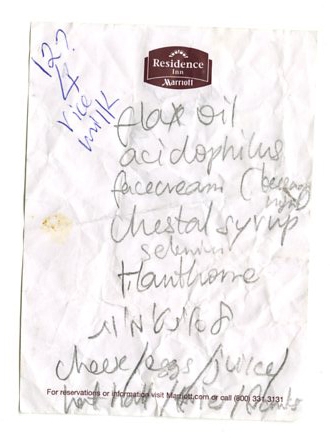 Residence
Inn
Marriott
12?
4
rice
milk
flax oil
acidophilus
facecream (
Chestal syrup
selenium
Hawthorne
cheese/eggs/juice/
For reservations or information visit Marriott.com or call (800) 331.3131